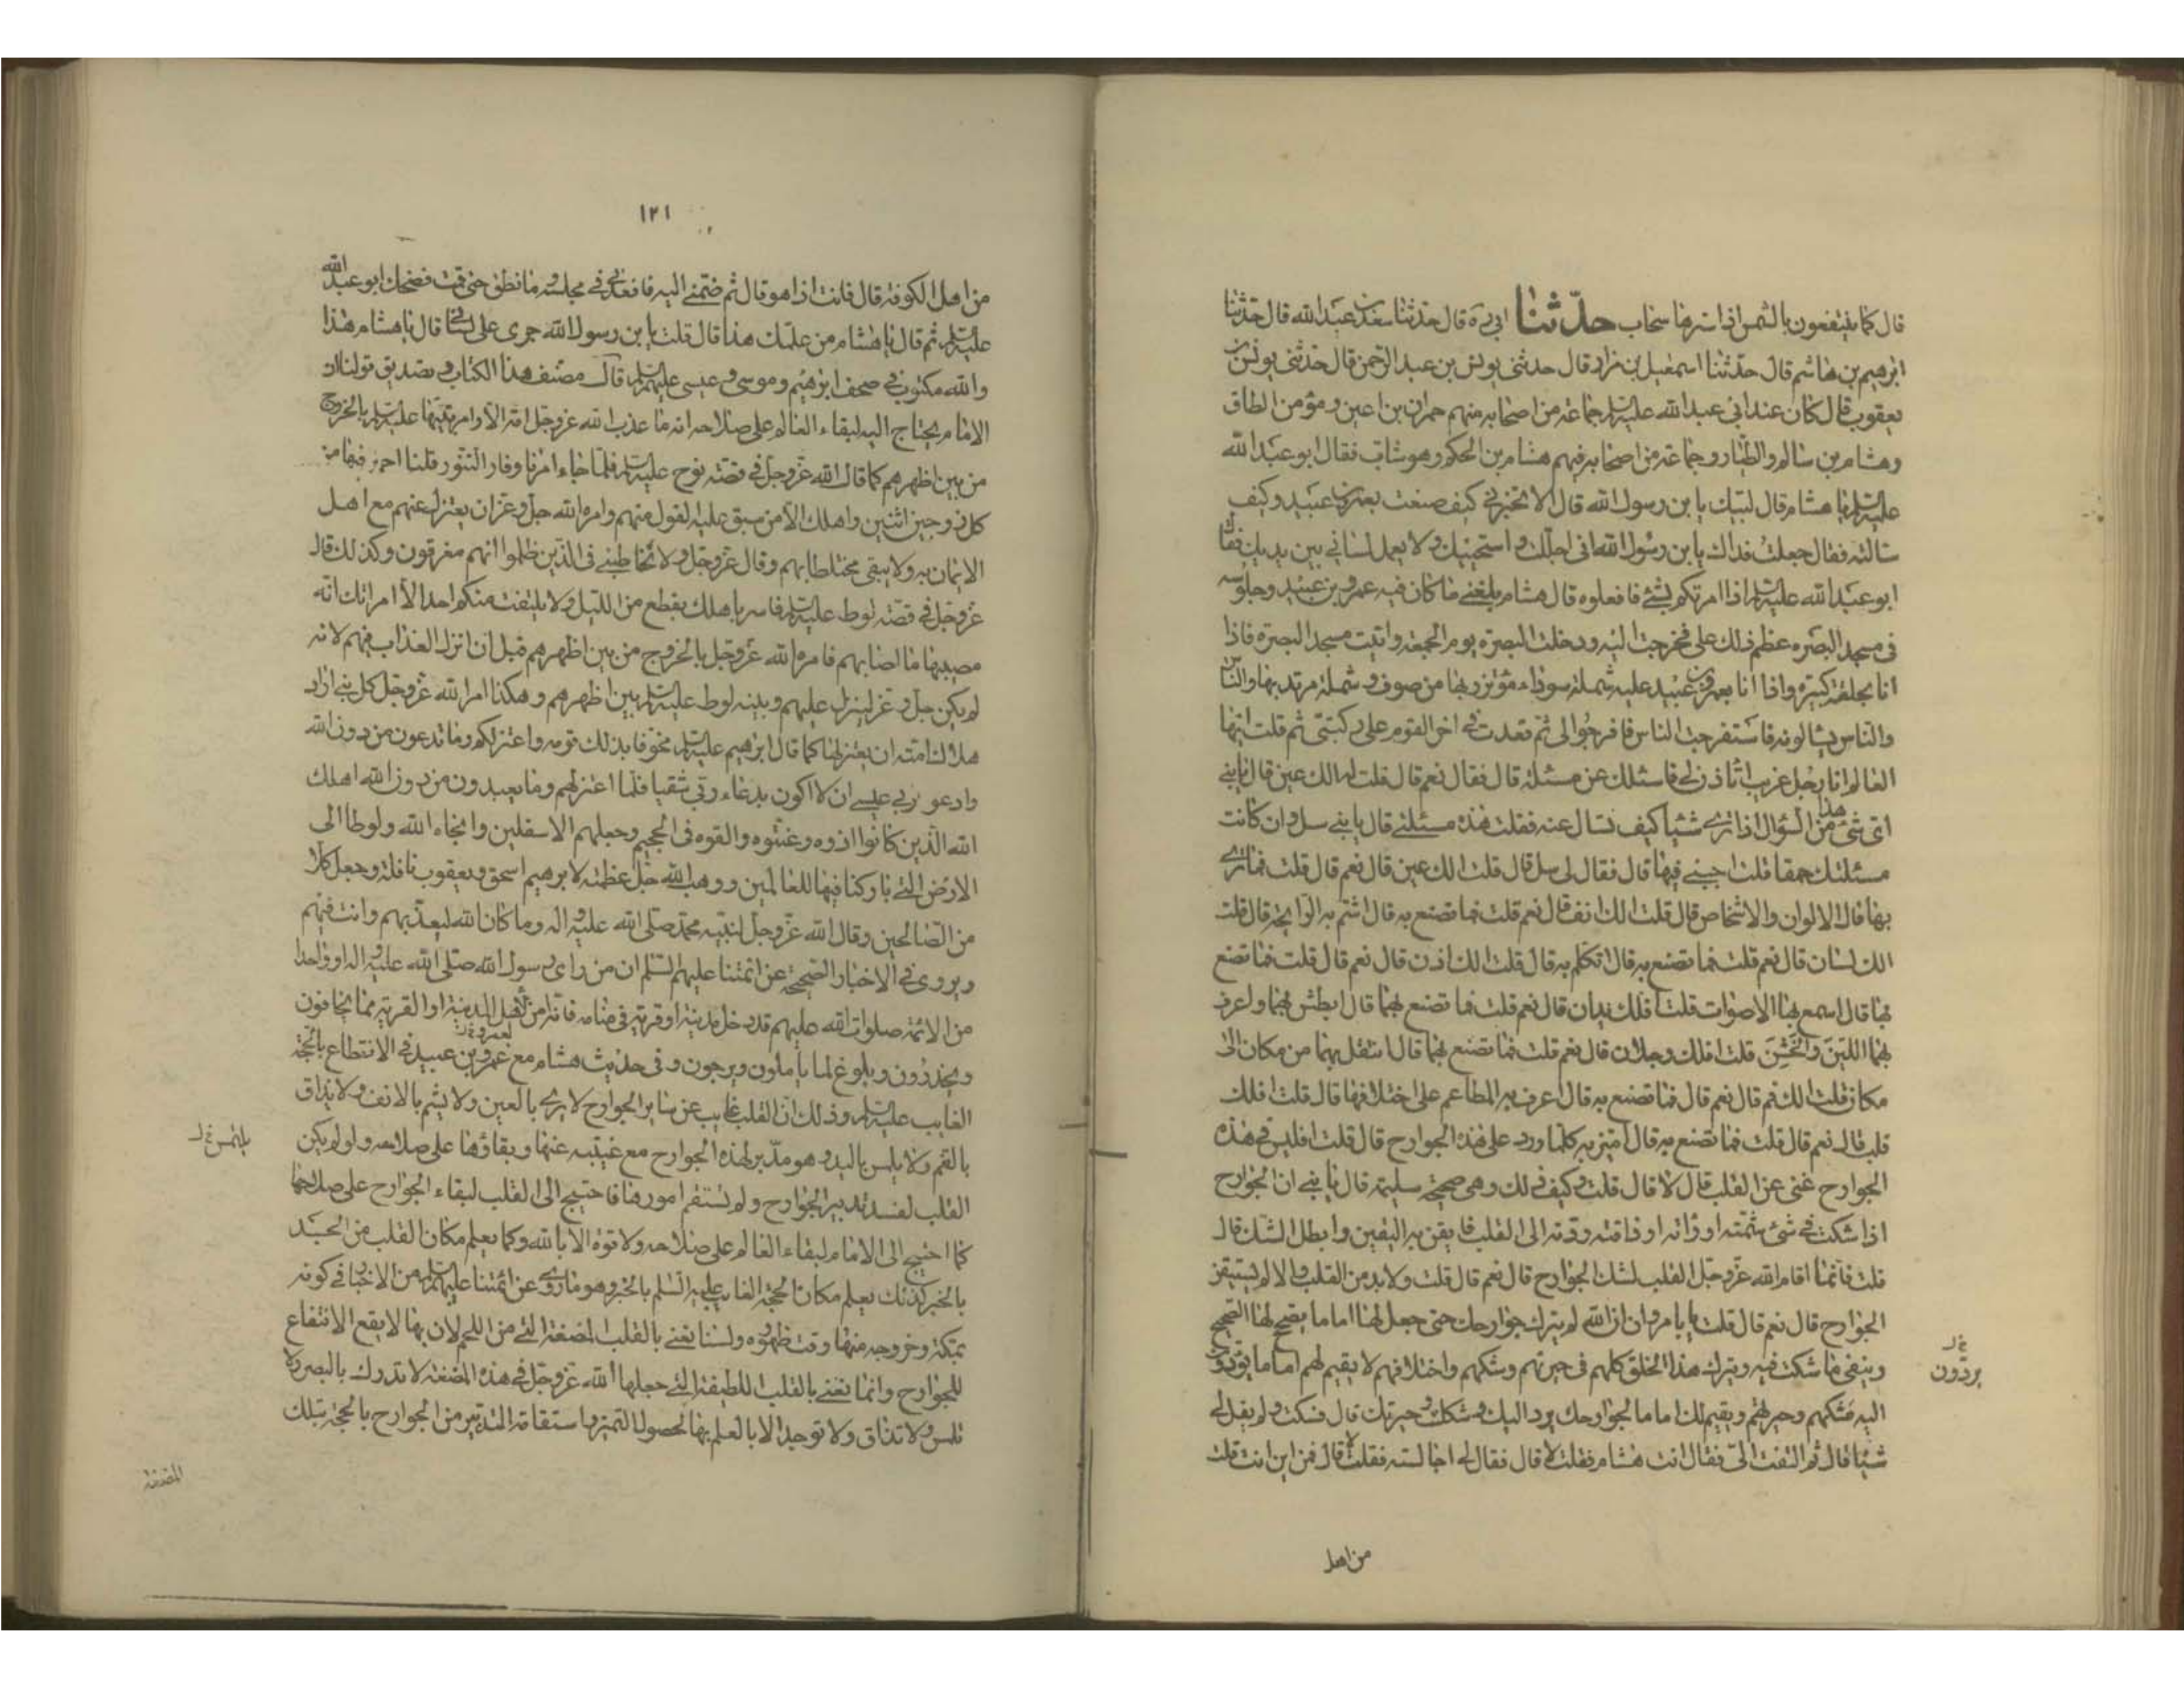 قال كما ينتفعون بالشمس اذا سترها سحاب حدّثنا ابي ره قال حدثنا سعد بن عبد الله قال حدثنا
ابرهيم بن هاشم قال حدثنا اسمعيل بن مرار قال حدثني يونس بن عبد الرحمن قال حدثني يونس بن
يعقوب قال كان عند ابي عبد الله عليه السلام جماعة من اصحابه منهم حمران بن اعين ومؤمن الطاق
وهشام بن سالم والطيار وجماعة من اصحابه فيهم هشام بن الحكم وهو شاب فقال ابو عبد الله
عليه السلام يا هشام قال لبيك يا بن رسول الله قال الا تخبرني كيف صنعت بعمرو بن عبيد وكيف
سالته فقال جعلت فداك يا بن رسول الله اني اجلّك واستحييك ولا يعمل لساني بين يديك فقال
ابو عبد الله عليه السلام اذا امرتكم بشئ فافعلوه قال هشام بلغني ما كان فيه عمرو بن عبيد وجلوسه
في مسجد البصره عظم ذلك علي فخرجت اليه ودخلت البصرة يوم الجمعة واتيت مسجد البصرة فاذا
انا بحلقة كبيرة واذا انا بعمرو بن عبيد عليه شملة سوداء مؤتزر بها من صوف وشملة مرتد بها والناس
والناس يسالونه فاستفرجت الناس فافرجوا لي ثم قعدت في اخر القوم على ركبتي ثم قلت ايها
العالم انا رجل غريب اتاذن لي فاسئلك عن مسئلة قال فقال نعم قال قلت له الك عين قال يا بني
اي شئ هذا من السؤال اذا ترى شيئا كيف تسال عنه فقلت هذه مسئلتي قال يا بني سل وان كانت
مسئلتك حمقا قلت اجبني فيها قال فقال لي سل قال قلت الك عين قال نعم قال قلت فما ترى
بها قال الالوان والاشخاص قال قلت الك انف قال نعم قلت فما تصنع به قال اشتم به الرايحة قال قلت
الك لسان قال نعم قلت فما تصنع به قال اتكلم به قال قلت الك اذن قال نعم قال قلت فما تصنع
بها قال اسمع بها الاصوات قلت افلك يدان قال نعم قلت فما تصنع بهما قال ابطش بهما واعرف
بهما اللين والخشن قلت افلك رجلان قال نعم قلت فما تصنع بهما قال انتقل بهما من مكان الى
مكان قلت الك فم قال نعم قال فما تصنع به قال اعرف به المطاعم على اختلافها قال قلت افلك
قلب قال نعم قال قلت فما تصنع به قال اميز به كلما ورد على هذه الجوارح قال قلت افليس في هذه
الجوارح غنى عن القلب قال لا قال قلت وكيف ذلك وهي صحيحة سليمة قال يا بني ان الجوارح
اذا شكت في شئ شمته او راته او ذاقته ردته الى القلب فايقن به اليقين وابطل الشك قال
قلت فانما اقام الله عز وجل القلب لشك الجوارح قال نعم قال قلت ولابد من القلب والا لم يستيقن
الجوارح قال نعم قال قلت يا با مروان ان الله لم يترك جوارحك حتى جعل لها اماما يصح لها الصحيح
وينفي ما شكت فيه ويترك هذا الخلق كلهم في حيرتهم وشكهم واختلافهم لا يقيم لهم اماما يؤدون
يردّون خ ل
اليه شكهم وحيرتهم ويقيم لك اماما لجوارحك يرد اليك شكك وحيرتك قال فسكت ولم يقل لي
شيئا قال ثم التفت الي فقال انت هشام فقلت لا قال فقال لي اجالسته فقلت لا قال فمن اين انت قلت
من اهل
١٢١
من اهل الكوفة قال فانت اذا هو قال ثم ضمني اليه فاقعدني في مجلسه وما نطق حتى قمت فضحك ابو عبد الله
عليه السلام ثم قال يا هشام من علمك هذا قال قلت يا بن رسول الله جرى على لساني قال يا هشام هذا
والله مكتوب في صحف ابرهيم وموسى وعيسى عليهم السلام قال مصنف هذا الكتاب وتصديق قولنا ان
الامام يحتاج اليه لبقاء العالم على صلاحه انه ما عذب الله عز وجل امة الا وامر نبيها عليه السلام بالخروج
من بين اظهرهم كما قال الله عز وجل في قصة نوح عليه السلام فلما جاء امرنا وفار التنور قلنا احمل فيها من
كل زوجين اثنين واهلك الا من سبق عليه القول منهم وامره الله جل وعز ان يعتزل عنهم مع اهل
الايمان به ولا يبقى مختلطا بهم وقال عز وجل ولا تخاطبني في الذين ظلموا انهم مغرقون وكذلك قال
عز وجل في قصة لوط عليه السلام فاسر باهلك بقطع من الليل ولا يلتفت منكم احد الا امراتك انه
مصيبها ما اصابهم فامره الله عز وجل بالخروج من بين اظهرهم قبل ان انزل العذاب بهم لانه
لم يكن جل وعز لينزل عليهم وبينه لوط عليه السلام بين اظهرهم وهكذا امر الله عز وجل كل نبي اراد
هلاك امته ان يعتزلها كما قال ابرهيم عليه السلام مخوفا بذلك قومه واعتزلكم وما تدعون من دون الله
وادعو ربي عسى ان لا اكون بدعاء ربي شقيا فلما اعتزلهم وما يعبدون من دون الله اهلك
الله الذين كانوا اذوه وعنتوه والقوه في الجحيم وجعلهم الاسفلين وانجاه الله ولوطا الى
الارض التي باركنا فيها للعالمين ووهب الله جل عظمته لابرهيم اسحق ويعقوب نافلة وجعل كلا
من الصالحين وقال الله عز وجل لنبيه محمد صلى الله عليه واله وما كان الله ليعذبهم وانت فيهم
ويروى في الاخبار الصحيحة عن ائمتنا عليهم السلم ان من راى رسول الله صلى الله عليه واله او واحدا
من الائمة صلوات الله عليهم قد دخل مدينة او قرية في منامه فانه امن لاهل المدينة او القرية مما يخافون
ويحذرون وبلوغ لما ياملون ويرجون وفي حديث هشام مع عمرو بن عبيد في الانتفاع بالحجة
الغايب عليه السلام وذلك ان القلب غايب عن ساير الجوارح لا يرى بالعين ولا يشم بالانف ولا يذاق
بالفم ولا يلمس باليد وهو مدبر لهذه الجوارح مع غيبته عنها وبقاؤها على صلاحه ولو لم يكن
القلب لفسد تدبير الجوارح ولم تستقم امورها فاحتيج الى القلب لبقاء الجوارح على صلاحها
كما احتيج الى الامام لبقاء العالم على صلاحه ولا قوة الا بالله وكما يعلم مكان القلب من الجسد
بالخبر كذلك يعلم مكان الحجة الغايب عليه السلم بالخبر وهو ما روى عن ائمتنا عليهم السلام من الاخبار في كونه
بمكة وخروجه منها وقت ظهوره ولسنا نعني بالقلب المضغة التي من اللحم لان بها لا يقع الانتفاع
للجوارح وانما نعني بالقلب اللطيفة التي جعلها الله عز وجل في هذه المضغة لا تدرك بالبصر ولا
تلمس ولا تذاق ولا توجد الا بالعلم بها لحصول التميز واستقامة التدبير من الجوارح بالحجة بتلك
المضغة